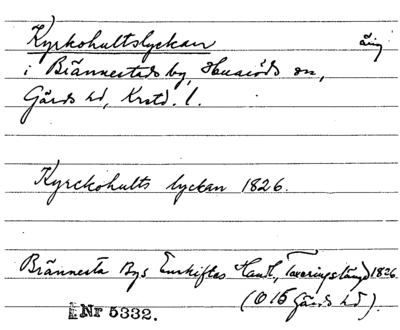 Kyrkohultslyckan äng
i Brännestads by, Huaröds sn,
Gärds hd, Krstd. l.
Kyrckohults lyckan 1826.
Brännesta Bys Enskiftes Handl., Taxeringslängd 1826
(O 15 Gärds hd).
Nr 5332.